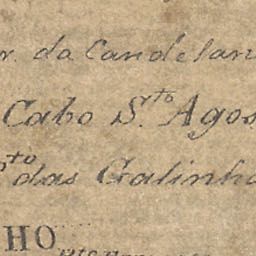 r. da Candelar
Cabo S.to Agos
to das Galinha
HO